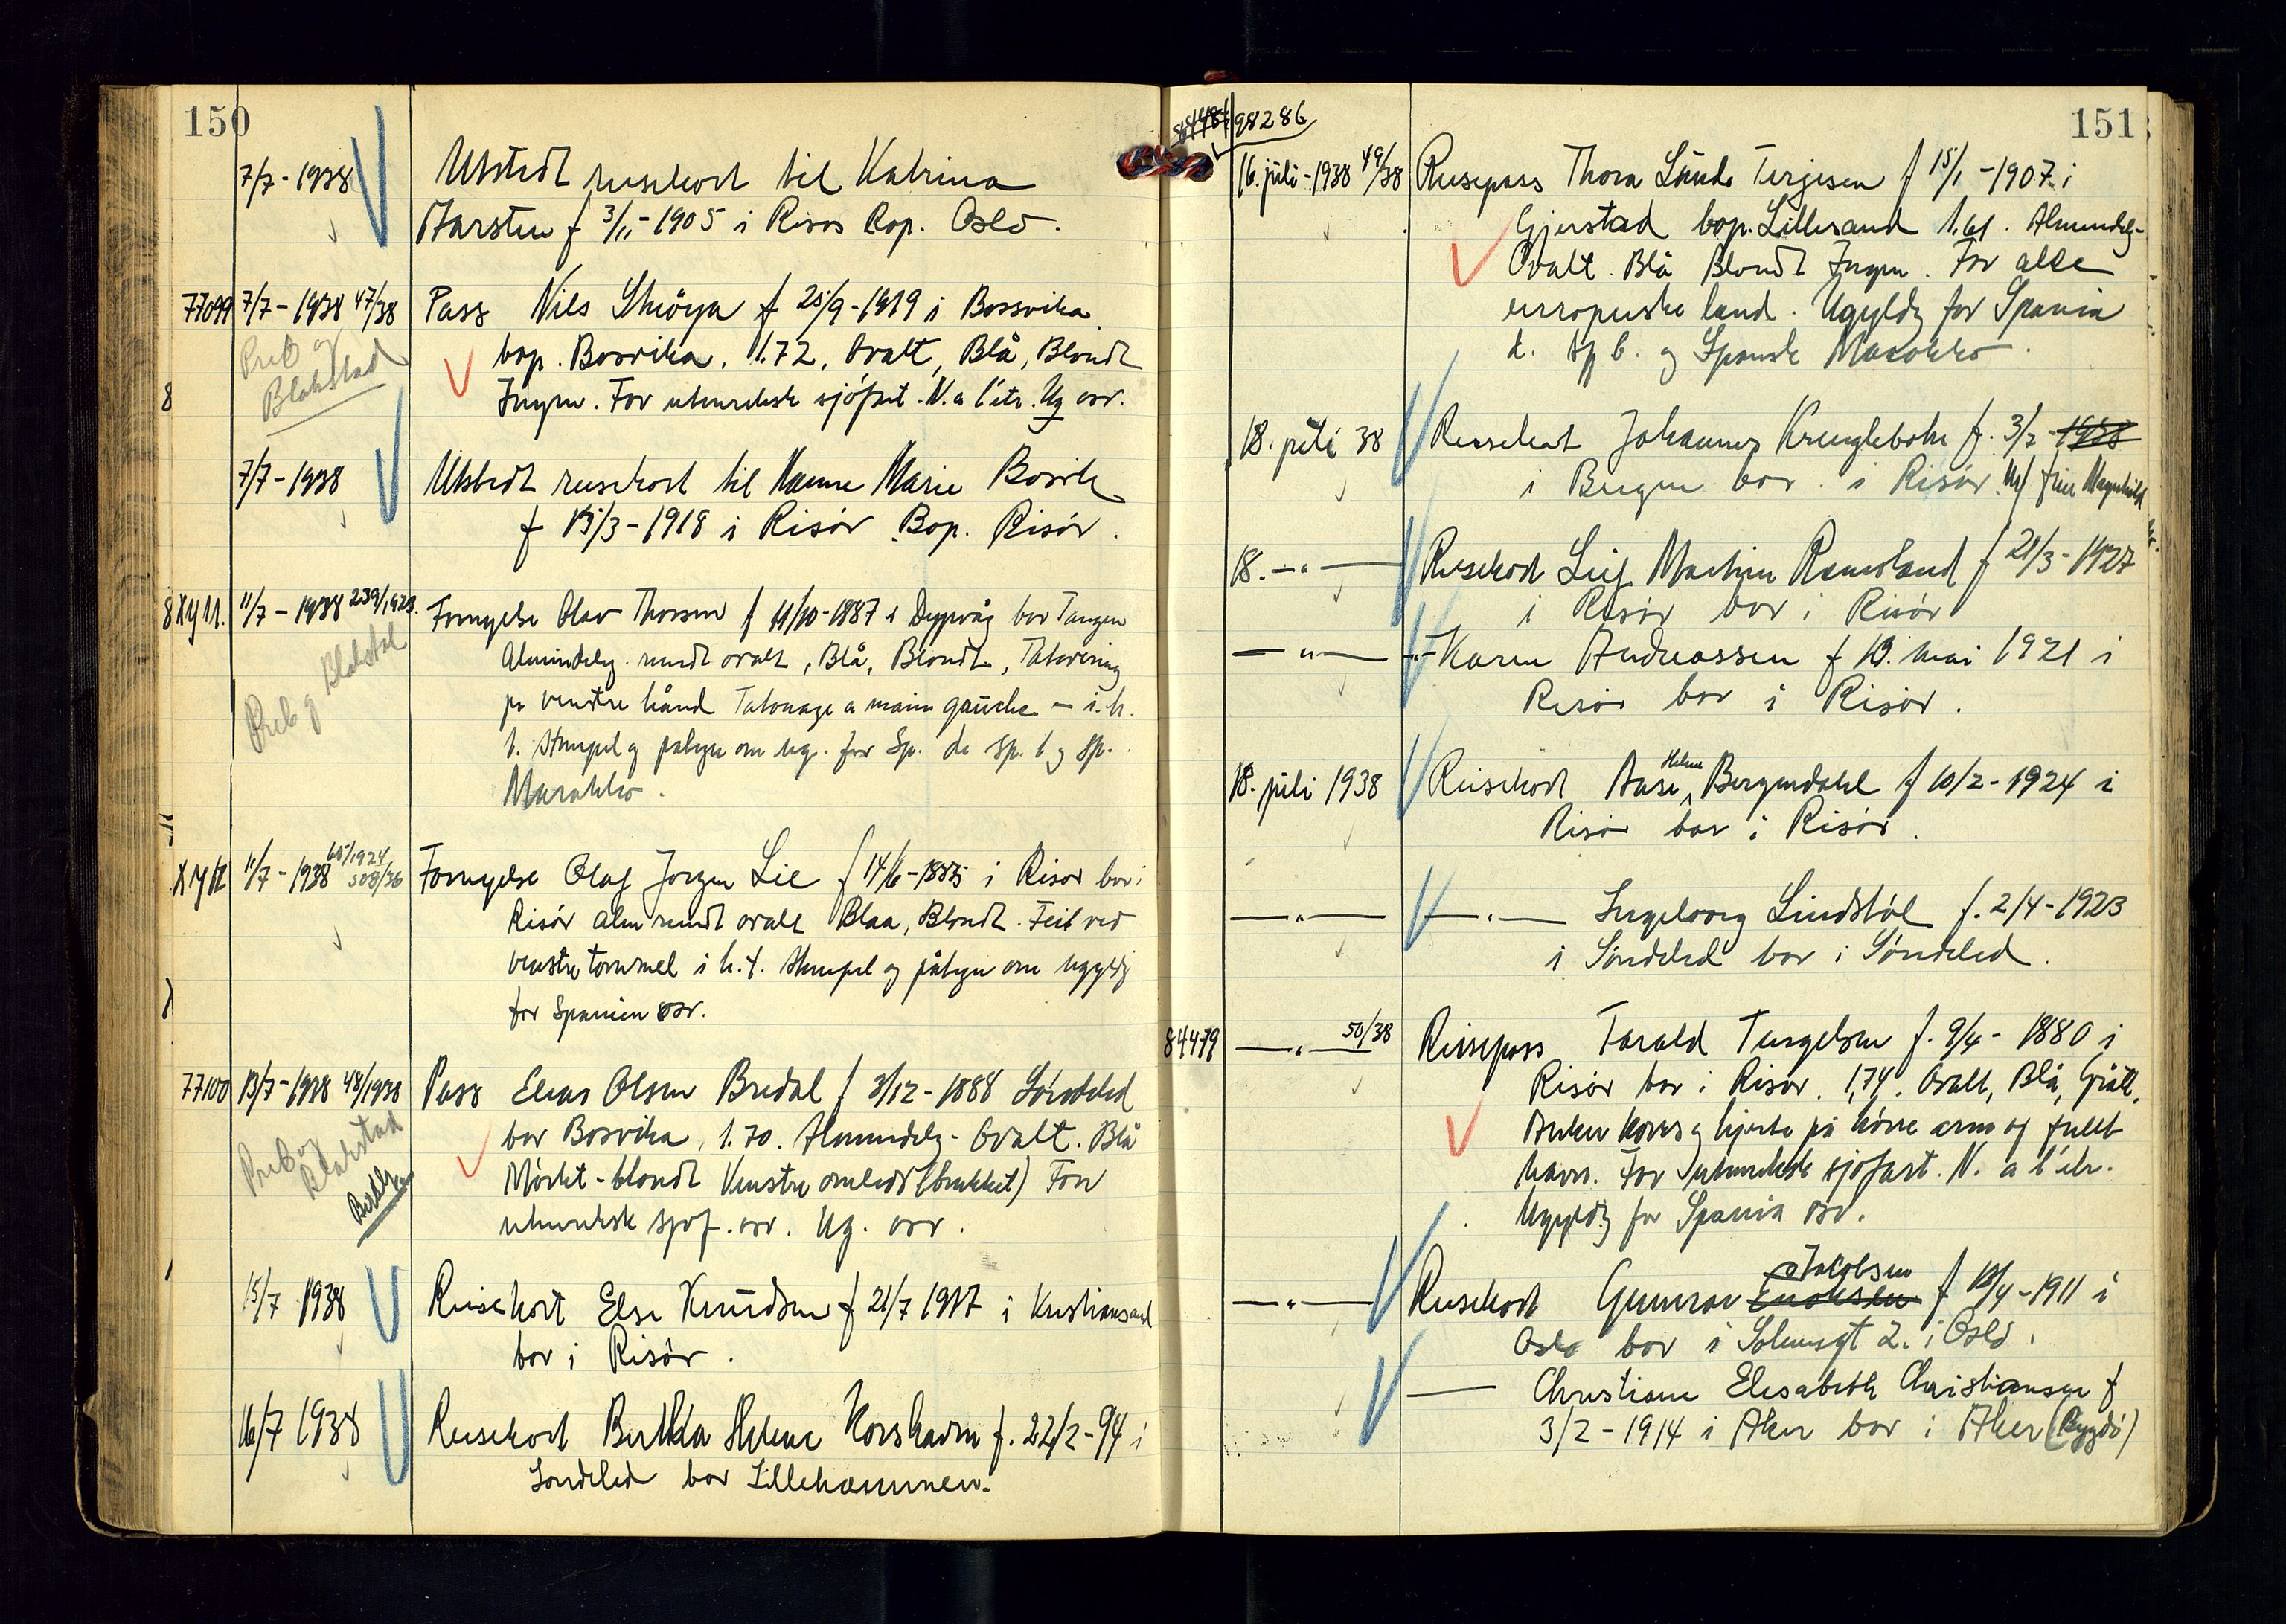 150
7/7 - 1938 Utstedt reisekort til Katrina
Aarsten f 3/11-1905 i Risør Bop. Oslo.
77099 7/7 - 1938 47/38 Pass Nils f 25/9-1919 i Bossvika
bop. Bosvika, 1.72, Ovalt, Blå, Blondt
Blakstad
Ingen. For utenriksk sjøfart. N. a l'étr. Ug osv.
7/7 - 1938 Utstedt reisekort til Hanne Marie Bosvik
f 15/3-1918 i Risør Bop. Risør.
11/7 - 1938 239/1923. Fornyelse Olav Thorsen f 11/10-1887 i Dypvåg bor Tangen
Almindelig rundt ovalt, Blå, Blondt, Tatovering
Preb og Blakstad
på venstre hånd Tatouage a main gauche - i.h.
t. Stempel og påtegn om ug. for Sp. de sp. b og sp.
Marokko.
11/7 - 1938 60/1924 508/36 Fornyelse Olaf Jørgen Lie f 14/6-1885 i Risør bor i
Risør alm rundt ovalt Blaa, Blondt. Feil ved
venstre tommel i h.t. Stempel og påtegn om ugyldig
for Spanien osv.
77100 13/7 - 1938 48/1938 Pass Elias Olsen Bredal f 3/12-1888 Søndeled
bor Bosvika, 1.70. Almindelig - Ovalt. Blå
Preb og Blakstad
Mörkt - blondt Venstre (brukket) For
utenriksk sjøf. osv. Ug. osv.
15/7 1938 Reisekort Else Knudsen f 21/7 1917 i Kristiansand
bor i Risør.
16/7 1938 Reisekort Bertha Helene f. 22/2-94 i
Søndeled bor Lillehammer.
151
84484 98286
16. juli - 1938 49/38 Reisepass Thora Lunde Terjesen f 15/1-1907 i
Gjerstad bop. Lillesand 1.61. Almindelig-
Ovalt. Blå Blondt Ingen. For alle
europeiske land. Ugyldig for Spania
d. sp b. og Spansk Marokko.
18. juli 38 Reisekort Johannes f. 3/2 - 1938
i Bergen bor i Risør.
18. - " - Reisekort Leif Martin Ramsland f 21/3-1927
i Risør bor i Risør
- " - - " - Karen Andreassen f 13. mai 1921 i
Risør bor i Risør.
18. juli 1938 Reisekort Aase Helene Bergendahl f 10/2-1924 i
Risør bor i Risør.
- " - - " - Ingeborg Lindstøl f. 2/4-1923
i Søndeled bor i Søndeled.
84479 - " - 50/38 Reisepass Tarald Tengelsen f. 9/4 - 1880 i
Risør bor i Risør. 1,74. Ovalt, Blå, Grått.
Anker kors og hjerte på høire arm og fullt
navn. For utenriksk sjøfart. N. a l'étr.
Ugyldig for Spania osv.
- " - Reisekort Gunvor Enoksen Jakobsen f 12/4-1911 i
Oslo bor i 2. i Oslo.
Christiane Elisabeth Christiansen f
3/2-1914 i Aker bor i Aker (Bygdö)